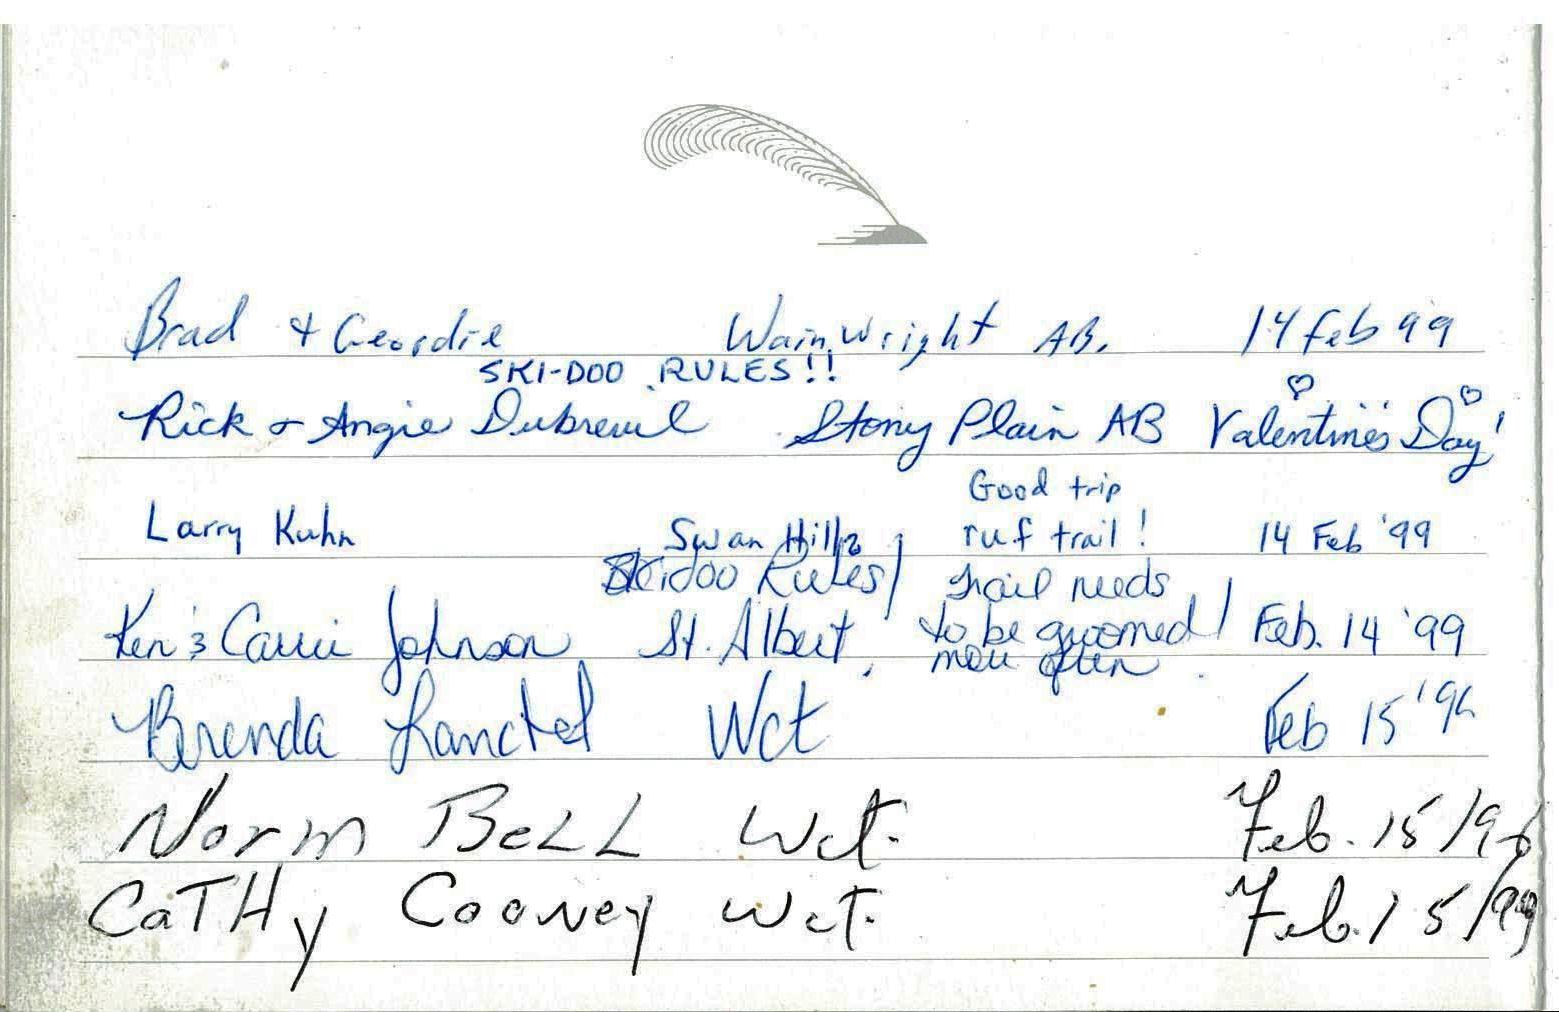 Brad + Geordie Wainwright AB. 14 Feb 99
SKI-DOO RULES!!
Rick & Angie Dubreuil Stony Plain AB Valentine's Day!
Good trip
Larry Kuhn Swan Hills ruf trail! 14 Feb '99
Skidoo Rules! trail needs
Ken & Carrie Johnson St. Albert, to be groomed! Feb. 14 '99
more often
Brenda Wct Feb 15
Norm BeLL Wct. Feb. 15/96
CaTHy Cooney Wct. Feb. 15/99